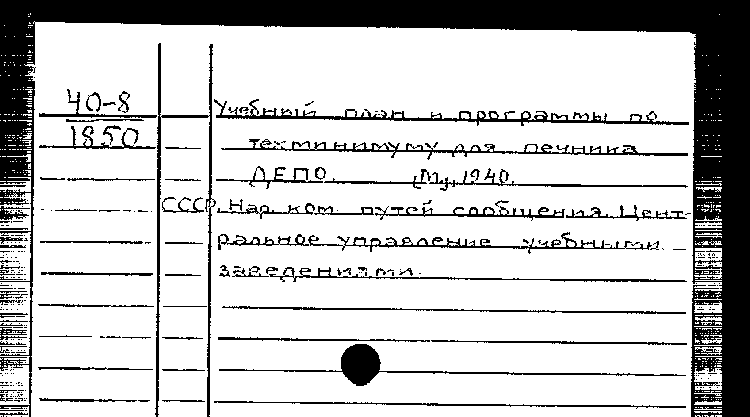 40-8
1850
Учебный план и программы по
техминимуму для печника
ДЕПО. М., 1940.
СССР. Нар. ком. путей сообщения. Цент-
ральное управление учебными
заведениями.